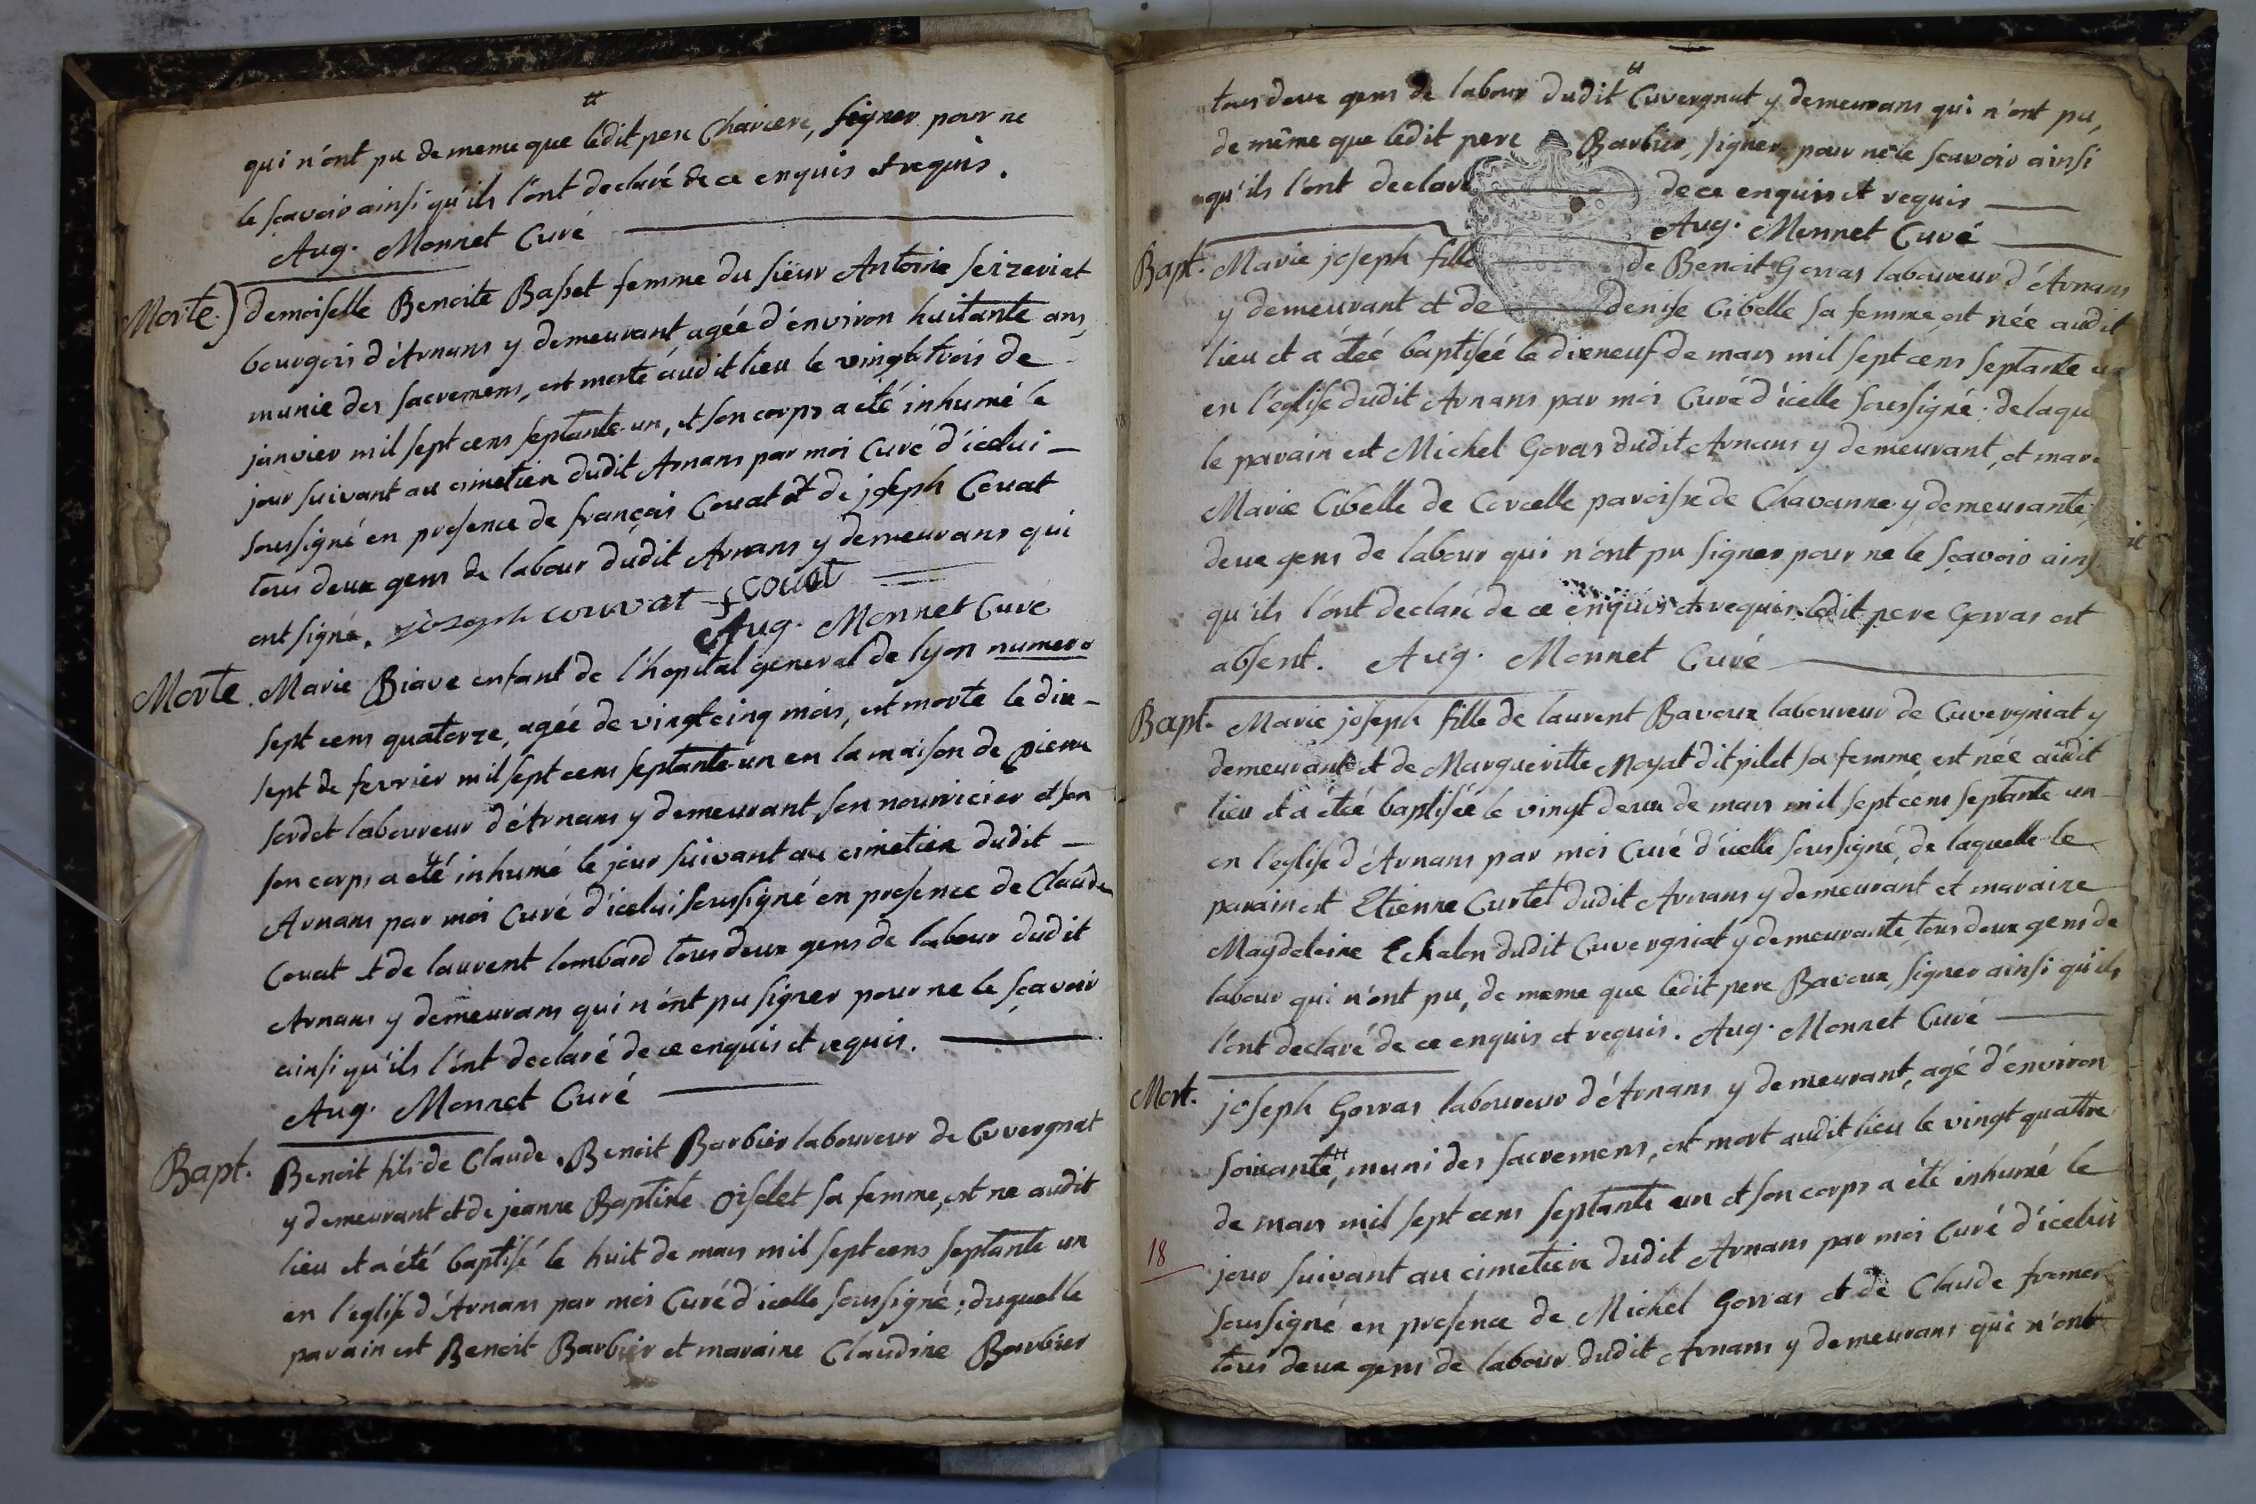 qui n'ont pu de meme que ledit pere Chariere, signer pour ne
le scavoir ainsi qu'ils l'ont declaré de ce enquis et requis.
Aug. Monnet Curé
Morte. demoiselle Benoite Basset femme du sieur Antoine Seizeriat
bourgois d'Arnans y demeurant agée d'environ huitante ans,
munie des sacremens, est morte audit lieu le vingt trois de
janvier mil sept cens septante-un, et son corps a été inhumé le
jour suivant au cimetiere dudit Arnans par moi Curé d'icelui
soussigné en presence de françois Couat et de joseph Couat
tous deux gens de labour dudit Arnans y demeurans qui
ont signé. joseph couvat f couat
Aug. Monnet Curé
Morte. Marie Biave enfant de l'hopital general de lyon numero
sept cens quatorze, agée de vingt cinq mois, est morte le dix-
sept de fevrier mil sept cens septante-un en la maison de pierre
sordet laboureur d'Arnans y demeurant son nourricier et son
son corps a été inhumé le jour suivant au cimetiere dudit
Arnans par moi Curé d'icelui soussigné en presence de Claude
Couat et de laurent lombard tous deux gens de labour dudit
Arnans y demeurans qui n'ont pu signer pour ne le sçavoir
ainsi qu'ils l'ont declaré de ce enquis et requis.
Aug. Monnet Curé
Bapt. Benoit fils de Claude Benoit Barbier laboureur de Cuvergnat
y demeurant et de jeanne Baptiste Oiselet sa femme, est ne audit
lieu et a été baptisé le huit de mars mil sept cens septante un
en l'eglise d'Arnans par moi Curé d'icelle soussigné; duquel le
parain est Benoit Barbier et maraine Claudine Barbier
tous deux gens de labour dudit Cuvergnat y demeurans qui n'ont pu,
de même que ledit pere Barbier, signer pour ne le scavoir ainsi
qu'ils l'ont declaré de ce enquis et requis
Aug. Monnet Curé
Bapt. Marie joseph fille de Benoit Gorras laboureur d'Arnans
y demeurant et de denise Cibelle sa femme, est née audit
lieu et a éteé baptiseé le dixneuf de mars mil sept cens septante un
en l'eglise dudit Arnans par moi Curé d'icelle soussigné: de laqu
le parain est Michel Gorras dudit Arnans y demeurant, et mar
Marie Cibelle de Corcelle paroisse de Chavanne y demeurante,
deux gens de labour qui n'ont pu signer pour ne le sçavoir ains
qu'ils l'ont declaré de ce enquis et requis. ledit pere Gorras est
absent. Aug. Monnet Curé
Bapt. Marie joseph fille de laurent Bavoux laboureur de Cuvergniat y
demeurant et de Margueritte Moyat dit pilet sa femme, est née audit
lieu et a éteé baptisée le vingt deux de mars mil sept cens septante un
en l'eglise d'Arnans par moi Curé d'icelle soussigné, de laquelle le
parain est Etienne Curtet dudit Arnans y demeurant et maraine
Magdeleine Echalon dudit Cuvergniat y demeurante, tous deux gens de
labour qui n'ont pu, de meme que ledit pere Bavoux, signer ainsi qu'ils
l'ont declaré de ce enquis et requis. Aug. Monnet Curé
Mort. joseph Gorras laboureur d'Arnans y demeurant, agé d'environ
soixante, muni des sacremens, est mort audit lieu le vingt quattre
de mars mil sept cens septante un et son corps a été inhumé le
18 jour suivant au cimetiere dudit Arnans par moi Curé d'icelui
soussigné en presence de Michel Gorras et de Claude
tous deux gens de labour dudit Arnans y demeurans qui n'ont